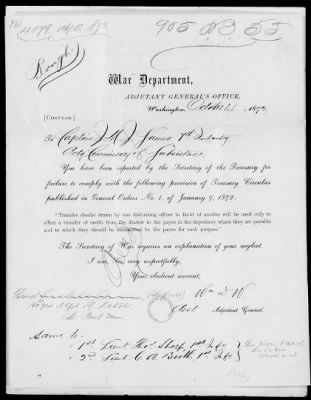 4079. A.G.O. 
905 A.C.P. 55
Rough.
War Department,
ADJUTANT GENERAL'S OFFICE,
Washington, October 2, 1872
[CIRCULAR.]
To Captain J. M. J. 7th Infantry
Actg Commissary of Subsistence.
You have been reported by the Secretary of the Treasury for
failure to comply with the following provision of Treasury Circular
published in General Orders No. 1, of January 9, 1872.
"Transfer checks drawn by one disbursing officer in favor of another will be used only to
effect a transfer of credit from the drawer to the payee in the depository where they are payable
and to which they should be by the payee for such purpose."
The Secretary of War requires an explanation of your neglect.
I am, Sir, very respectfully,
Your obedient servant,
Wm D. W.
Asst Adjutant General.
Hdqrs Dept of Dakota
St. Paul
Same to
1st Lieut Thos. Sharp, 1st Infy
2nd Lieut. C. A. Booth, 1st Infy